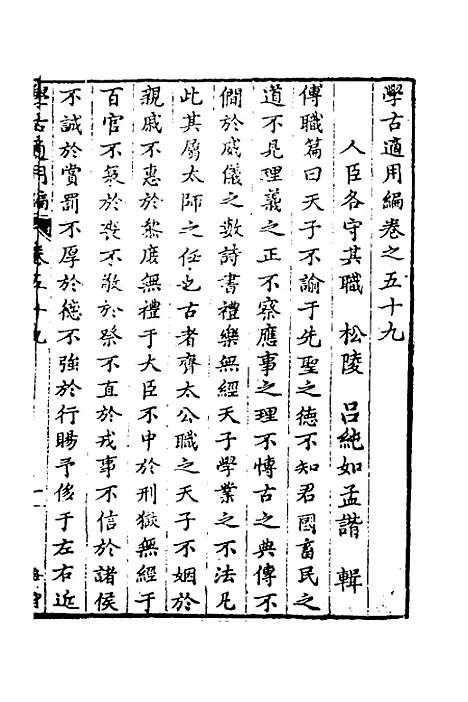 學古適用編卷之五十九
人臣各守其職　松陵　呂純如孟諧　輯
傳職篇曰天子不諭于先聖之德不知君國畜民之
道不見禮義之正不察應事之理不慱古之典傳不
僩於威儀之數詩書禮樂無經天子學業之不法凡
此其屬太師之任也古者齊太公職之天子不姻於
親戚不惠於黎庶無禮于大臣不中於刑獄無經于
百官不哀於喪不敬於祭不直於戎事不信於諸侯
不誠於賞罰不厚於德不強於行賜予侈于左右近
學古適用編　卷五十九　一